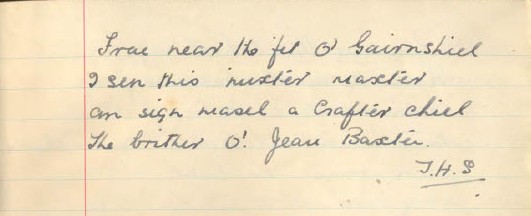 Frae near the fit O' Gairnshiel
I sen this mixter maxter
an sign masel a Crafter chiel
The brither O'. Jean Baxter.
J.H.S